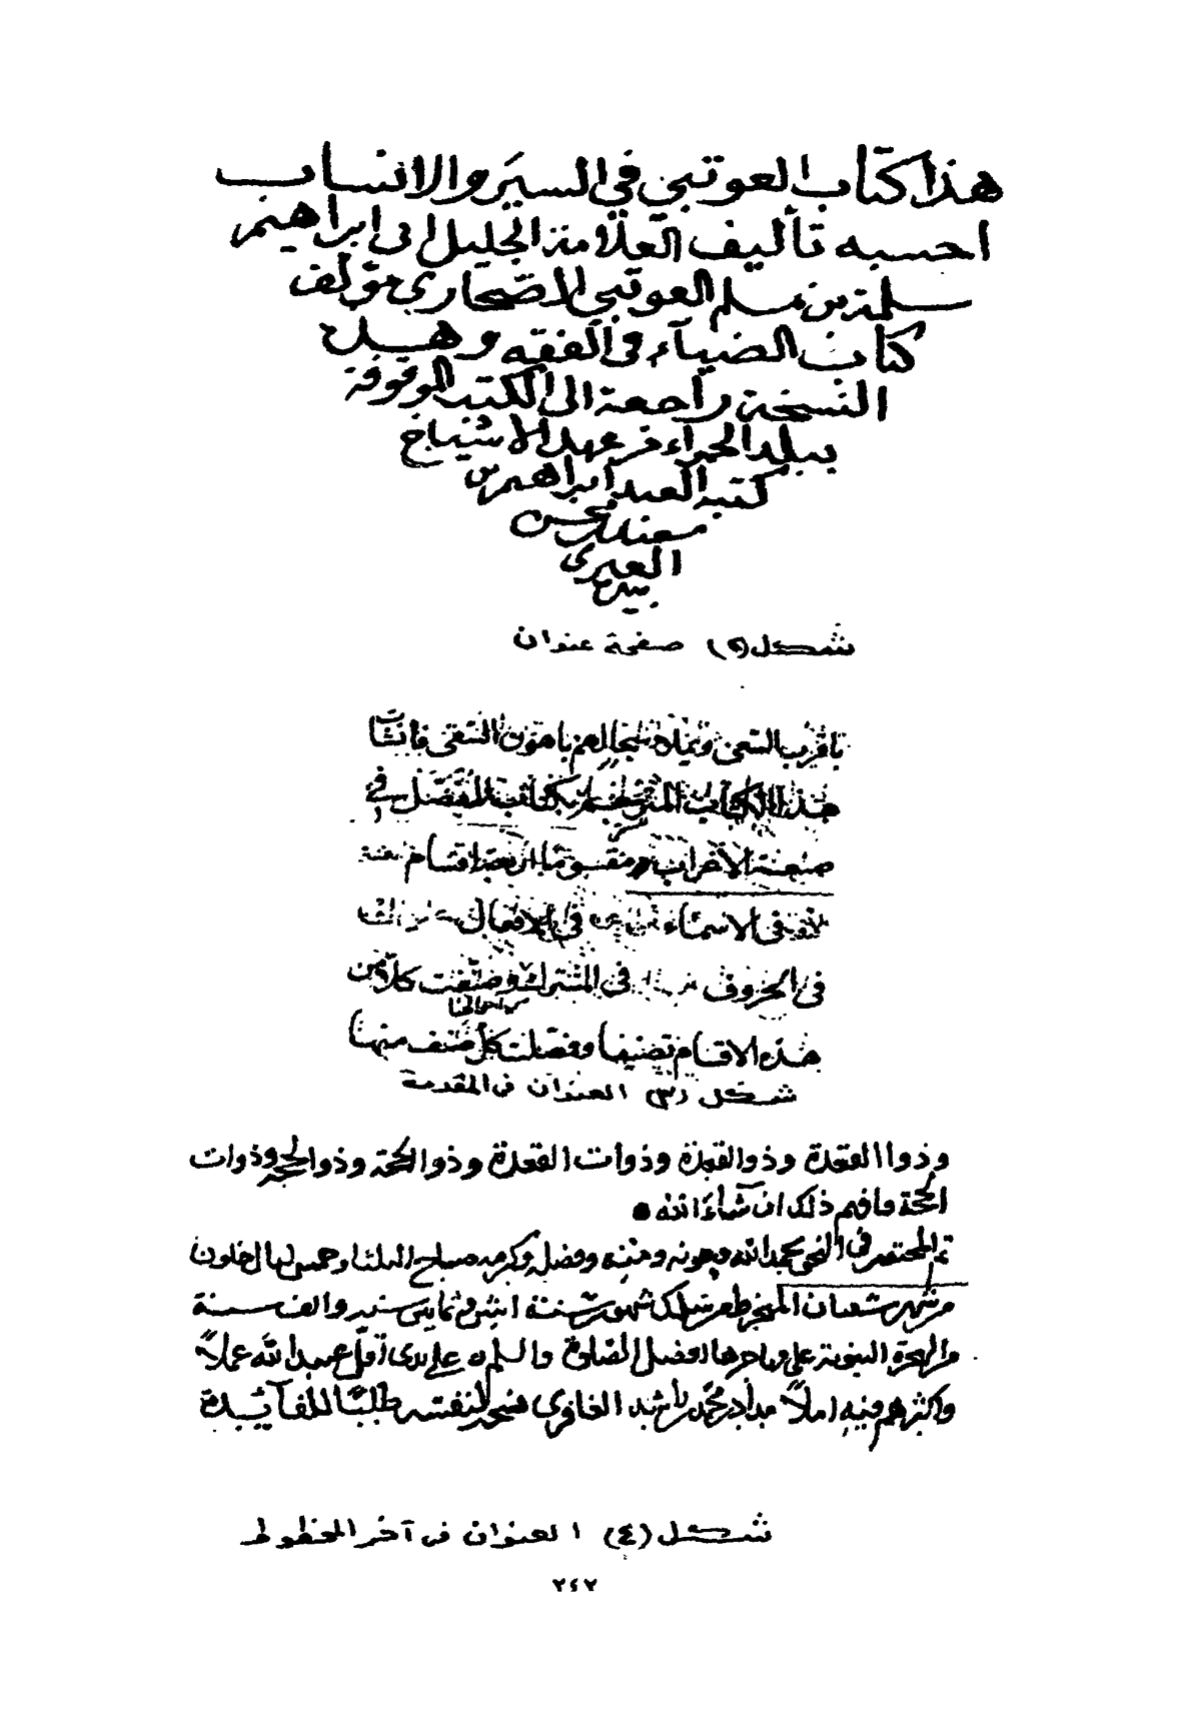 هذا كتاب العوتبي في السير والانساب
احسبه تأليف العلامة الجليل ابى ابراهيم
سلمة بن مسلم العوتبي الاصحاري مؤلف
كتاب الضيآء فى الفقه وهذه
النسخة راجعة الى الكتب الموقوفة
ببلد الحمراء من عهد الاشياخ
كتبه العبد ابراهيم بن
سعيد بن محسن
العبرى
بيده
شكل (٢) صفحة عنوان
فانشأت
هذا الكتاب المترجم بكتاب المفصل في
صنعة الاعراب مقسوما اربعة اقسام
فى الاسماء فى الافعال
فى الحروف فى المشترك وصنفت كلا من
هذه الاقسام تصنيفا وفصلت كل صنف منها
شكل (٣) العنوان فى المقدمة
وذوا القعدة وذو القعدة وذوات القعدة وذوا الحجة وذو الحجة وذوات
الحجة فافهم ذلك ان شآء الله
تم المختصر فى النحو بحمد الله وعونه ومنه وفضله وكرمه صباح الثلثا وخمس ليال خلون
من شهر شعبان شهور سنة اثنين وثمانين سنه والف سنة
من الهجرة النبوية على مهاجرها افضل الصلوة والسلم على يدى اقل عبيد الله عملاً
واكثرهم فيه املاً مداد بن محمد بن راشد الغافرى نسخه لنفسه طلبًا للفآئدة
شكل (٤) العنوان فى آخر المخطوط
٢٤٧